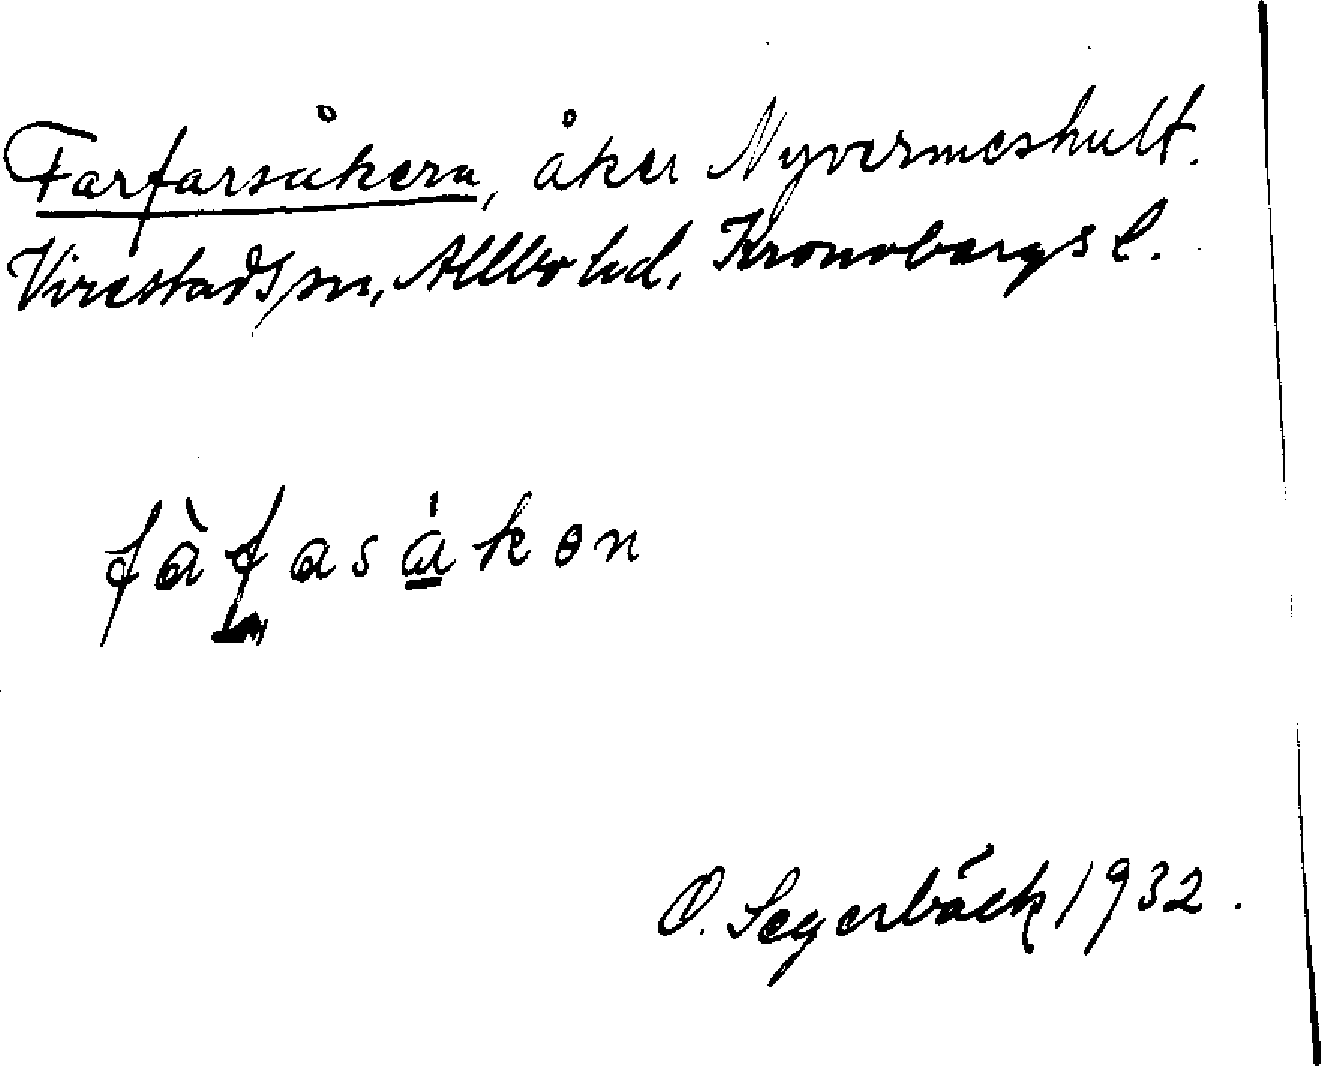 Farfarsåkern, åker Nyvermeshult.
Virestads sn, Allbo hd, Kronobergs l.
fàfasákən
O. Segerbäck 1932.